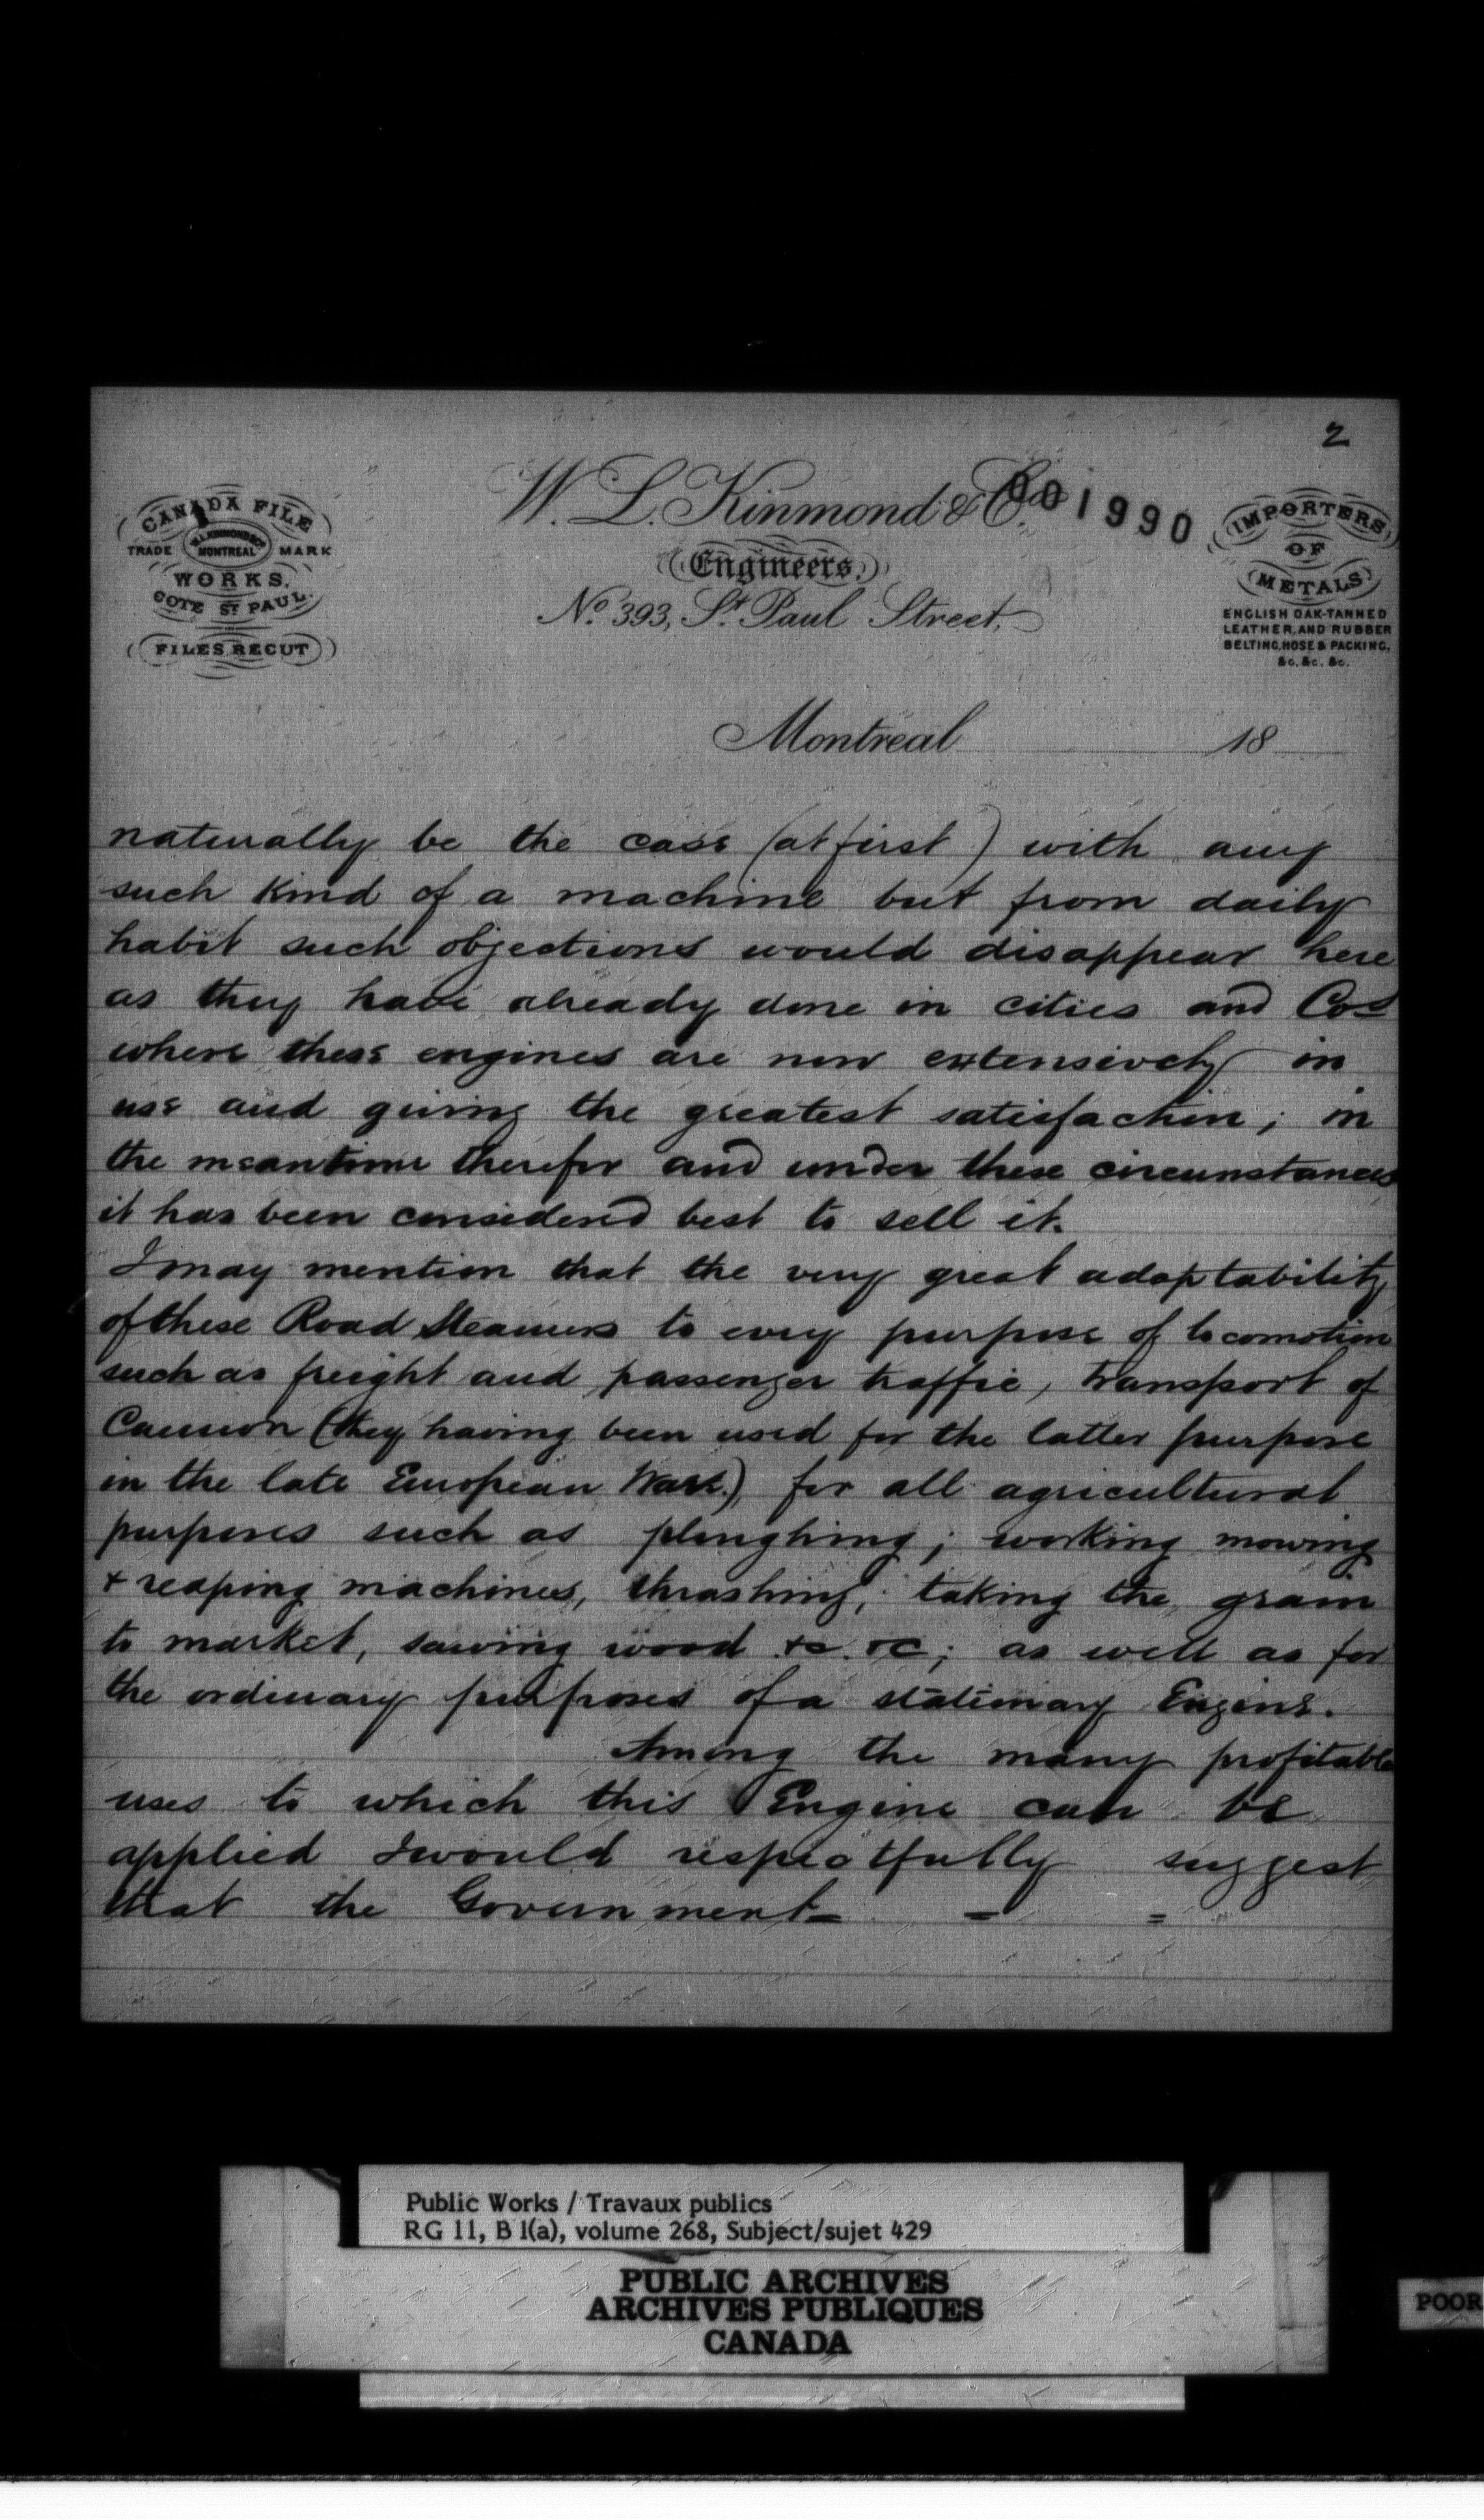 2
001990
CANADA FILE
TRADE W.L.KINMOND & Co MONTREAL MARK
WORKS.
COTE ST PAUL.
FILES RECUT
W. L. Kinmond & Co.
Engineers.
No. 393, St. Paul Street,
IMPORTERS
OF
METALS
ENGLISH OAK-TANNED
LEATHER, AND RUBBER
BELTING, HOSE & PACKING,
&c. &c. &c.
Montreal 18
naturally be the case (at first) with any
such kind of a machine but from daily
habit such objections would disappear here
as they have already done in cities and Cos
where these engines are now extensively in
use and giving the greatest satisfaction; in
the meantime therefor and under these circumstances
it has been considered best to sell it.
I may mention that the very great adaptability
of these Road Steamers to every purpose of locomotion
such as freight and passenger traffic, transport of
Cannon (they having been used for the latter purpose
in the late European War.) for all agricultural
purposes such as ploughing; working mowing
& reaping machines, thrashing; taking the grain
to market, sawing wood &c. &c; as well as for
the ordinary purposes of a stationary Engine.
Among the many profitable
uses to which this Engine can be
applied I would respectfully suggest
that the Government - - =
Public Works / Travaux publics
RG 11, B 1(a), volume 268, Subject/sujet 429
PUBLIC ARCHIVES
ARCHIVES PUBLIQUES
CANADA
POOR